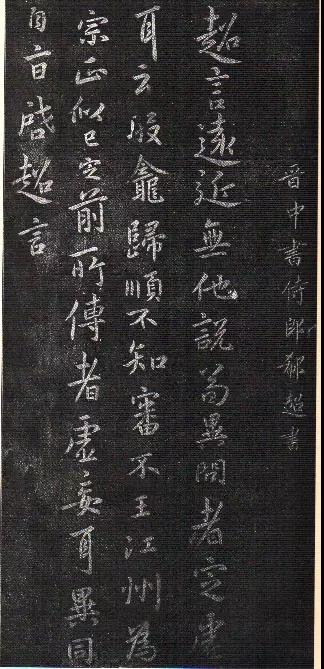 晉中書侍郎郗超書
超言遠近無他說为異問者定虛
耳云殷龕歸順不知審不王江州為
宗正似已定前所傳者虛妄耳異同
自百啓超言